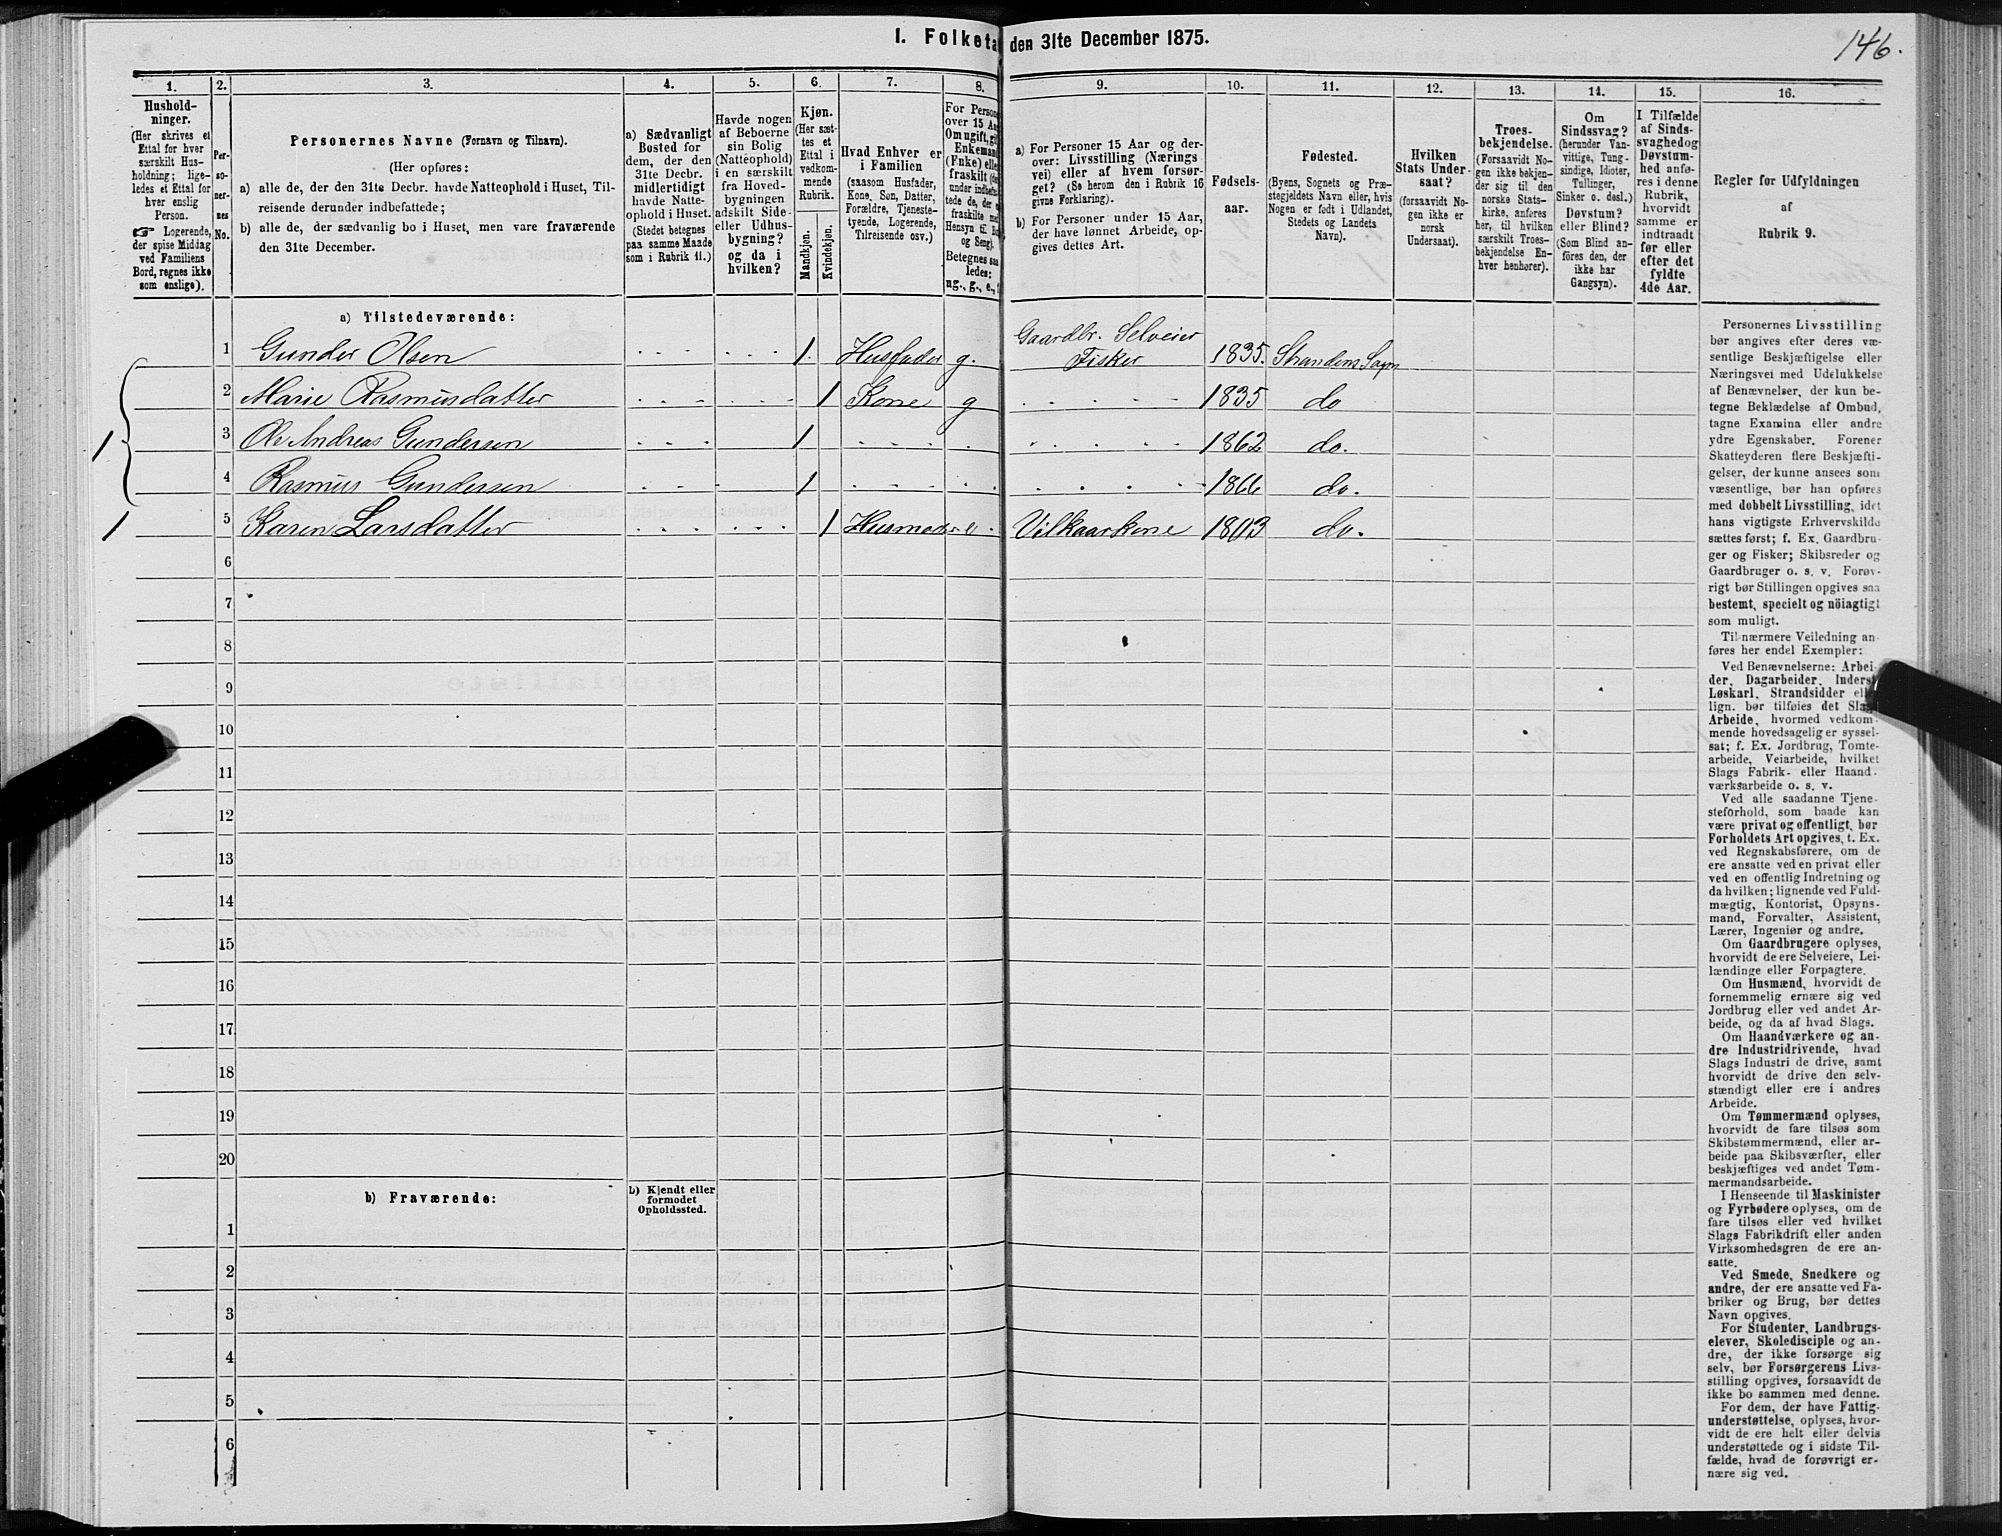 I. Folketæ den 31te December 1875.
146.
1. 2. 3. 4. 5. 6. 7. 8. 9. 10. 11. 12. 13. 14. 15. 16.
Hushold-
ninger.
(Her skrives et
Ettal for hver
særskilt Hus-
holdning; lige-
ledes et Ettal for
hver enslig
Person.
☞ Logerende,
der spise Middag
ved Familiens
Bord, regnes ikke
som enslige).
Per-
so-
ner-
nes
No.
Personernes Navne (Fornavn og Tilnavn).
(Her opføres:
a) alle de, der den 31te Decbr. havde Natteophold i Huset, Til-
reisende derunder indbefattede;
b) alle de, der sædvanlig bo i Huset, men vare fraværende
den 31te December.
a) Sædvanligt
Bosted for
dem, der den
31te Decbr.
midlertidigt
havde Natte-
ophold i Huset.
(Stedet betegnes
paa samme Maade
som i Rubrik 11.)
Havde nogen
af Beboerne
sin Bolig
(Natteophold)
i en særskilt
fra Hoved-
bygningen
adskilt Side-
eller Udhus-
bygning?
og da i
hvilken?
Kjøn.
(Her sæt-
tes et
Ettal i
vedkom-
mende
Rubrik.
Mandkjøn.
Kvindekjøn.
Hvad Enhver er
i Familien
(saasom Husfader,
Kone, Søn, Datter,
Forældre, Tjeneste-
tyende, Logerende,
Tilreisende osv.)
For Persone
over 15 Aa
Om ugift, gif
Enkemand
(Enke) elle
fraskilt (de
under indbefat-
tede de, der e
fraskilte me
Hensyn til Bo
og Seng).
Betegnes saa
ledes:
ug., g., e., f
a) For Personer 15 Aar og der-
over: Livsstilling (Nærings
vei) eller af hvem forsør-
get? (Se herom den i Rubrik 16
givne Forklaring).
b) For Personer under 15 Aar,
der have lønnet Arbeide, op-
gives dettes Art.
Fødsels-
aar.
Fødested.
(Byens, Sognets og Præ-
stegjeldets Navn eller, hvis
Nogen er født i Udlandet,
Stedets og Landets
Navn).
Hvilken
Stats Under
saat?
(forsaavidt No-
gen ikke er
norsk
Undersaat).
Troes-
bekjendelse.
(Forsaavidt No-
gen ikke bekjen-
der sig til den
norske Stats-
kirke, anføres
her, til hvilken
særskilt Troes-
bekjendelse En-
hver henhører).
Om
Sindssvag?
(herunder Van-
vittige, Tung-
sindige, Idioter,
Tullinger,
Sinker o. desl.)
Døvstum?
eller Blind?
(Som Blind an-
føres den, der
ikke har
Gangsyn).
I Tilfælde
af Sinds-
svaghed og
Døvstum-
hed anfø-
res i denne
Rubrik,
hvorvidt
samme er
indtraadt
før eller
efter det
fyldte
4de Aar.
Regler før Udfyldningen
af
Rubrik 9.
a) Tilstedeværende:
1 Gunder Olsen 1. Husfader g. Gaardbr. Selveier Fisker 1835. Strandens Sogn
1 2 Marie Rasmusdatter 1 Kone g 1835 do
3 Ole Andreas Gundersen 1 1862 do.
4 Rasmus Gundersen 1 1866 do.
1 5 Karen Larsdatter 1 Husmoder e. Vilkaarskone 1803 do.
6
7
8
9
10
11
12
13
14
15
16
17
18
19
20
b) Fraværende:
b) Kjendt eller
formodet
Opholdssted.
1
2
3
4
5
6
Personernes Livsstilling
bør angives efter deres væ-
sentlige Beskjæftigelse eller
Næringsvei med Udelukkelse
af Benævnelser, der kun be-
tegne Beklædelse af Ombud,
tagne Examina eller andre
ydre Egenskaber. Forener
Skatteyderen flere Beskjæfti-
gelser, der kunne ansees som
væsentlige, bør han opføres
med dobbelt Livsstilling, idet
hans vigtigste Erhvervskilde
sættes først; f. Ex. Gaardbru-
ger og Fisker; Skibsreder og
Gaardbruger o. s. v. Forøv-
rigt bør Stillingen opgives saa
bestemt, specielt og nöiagtigt
som muligt.
Til nærmere Veiledning an-
føres her endel Exempler:
Ved Benævnelserne: Arbei-
der, Dagarbeider, Inderst
Løskarl, Strandsidder eller
lign. bør tilføies det Slags
Arbeide, hvormed vedkom-
mende hovedsagelig er syssel-
sat; f. Ex. Jordbrug, Tomte-
arbeide, Veiarbeide, hvilket
Slags Fabrik- eller Haand-
værksarbeide o. s. v.
Ved alle saadanne Tjene-
steforhold, som baade kan
være privat og offentligt, bør
Forholdets Art opgives, t. Ex.
ved Regnskabsførere, om de
ere ansatte ved en privat eller
ved en offentlig Indretning og
da hvilken; lignende ved Fuld-
mægtig, Kontorist, Opsyns-
mand, Forvalter, Assistent,
Lærer, Ingeniør og andre.
Om Gaardbrugere oplyses,
hvorvidt de ere Selveiere, Lei-
lændinge eller Forpagtere.
Om Husmænd, hvorvidt de
fornemmelig ernære sig ved
Jordbrug eller ved andet Ar-
beide, og da af hvad Slags.
Om Haandværkere og an-
dre Industridrivende, hvad
Slags Industri de drive, samt
hvorvidt de drive den selv-
stændigt eller ere i andres
Arbeide.
Om Tømmermænd oplyses,
hvorvidt de fare tilsøs som
Skibstømmermænd, eller ar-
beide paa Skibsværfter, eller
beskjæftiges ved andet Tøm-
mermandsarbeide.
I Henseende til Maskinister
og Fyrbødere oplyses, om de
fare tilsøs eller ved hvilket
Slags Fabrikdrift eller anden
Virksomhedsgren de ere an-
satte.
Ved Smede, Snedkere og
andre, der ere ansatte ved Fa-
briker og Brug, bør dettes
Navn opgives.
For Studenter, Landbrugs-
elever, Skoledisciple og an-
dre, der ikke forsørge sig
selv, bør Forsørgerens Livs-
stilling opgives, forsaavidt de
ikke bo sammen med denne.
For dem, der have Fattig-
understøttelse, oplyses, hvor-
vidt de ere helt eller delvis
understøttede og i sidste Til-
fælde, hvad de forøvrigt er-
nære sig ved.